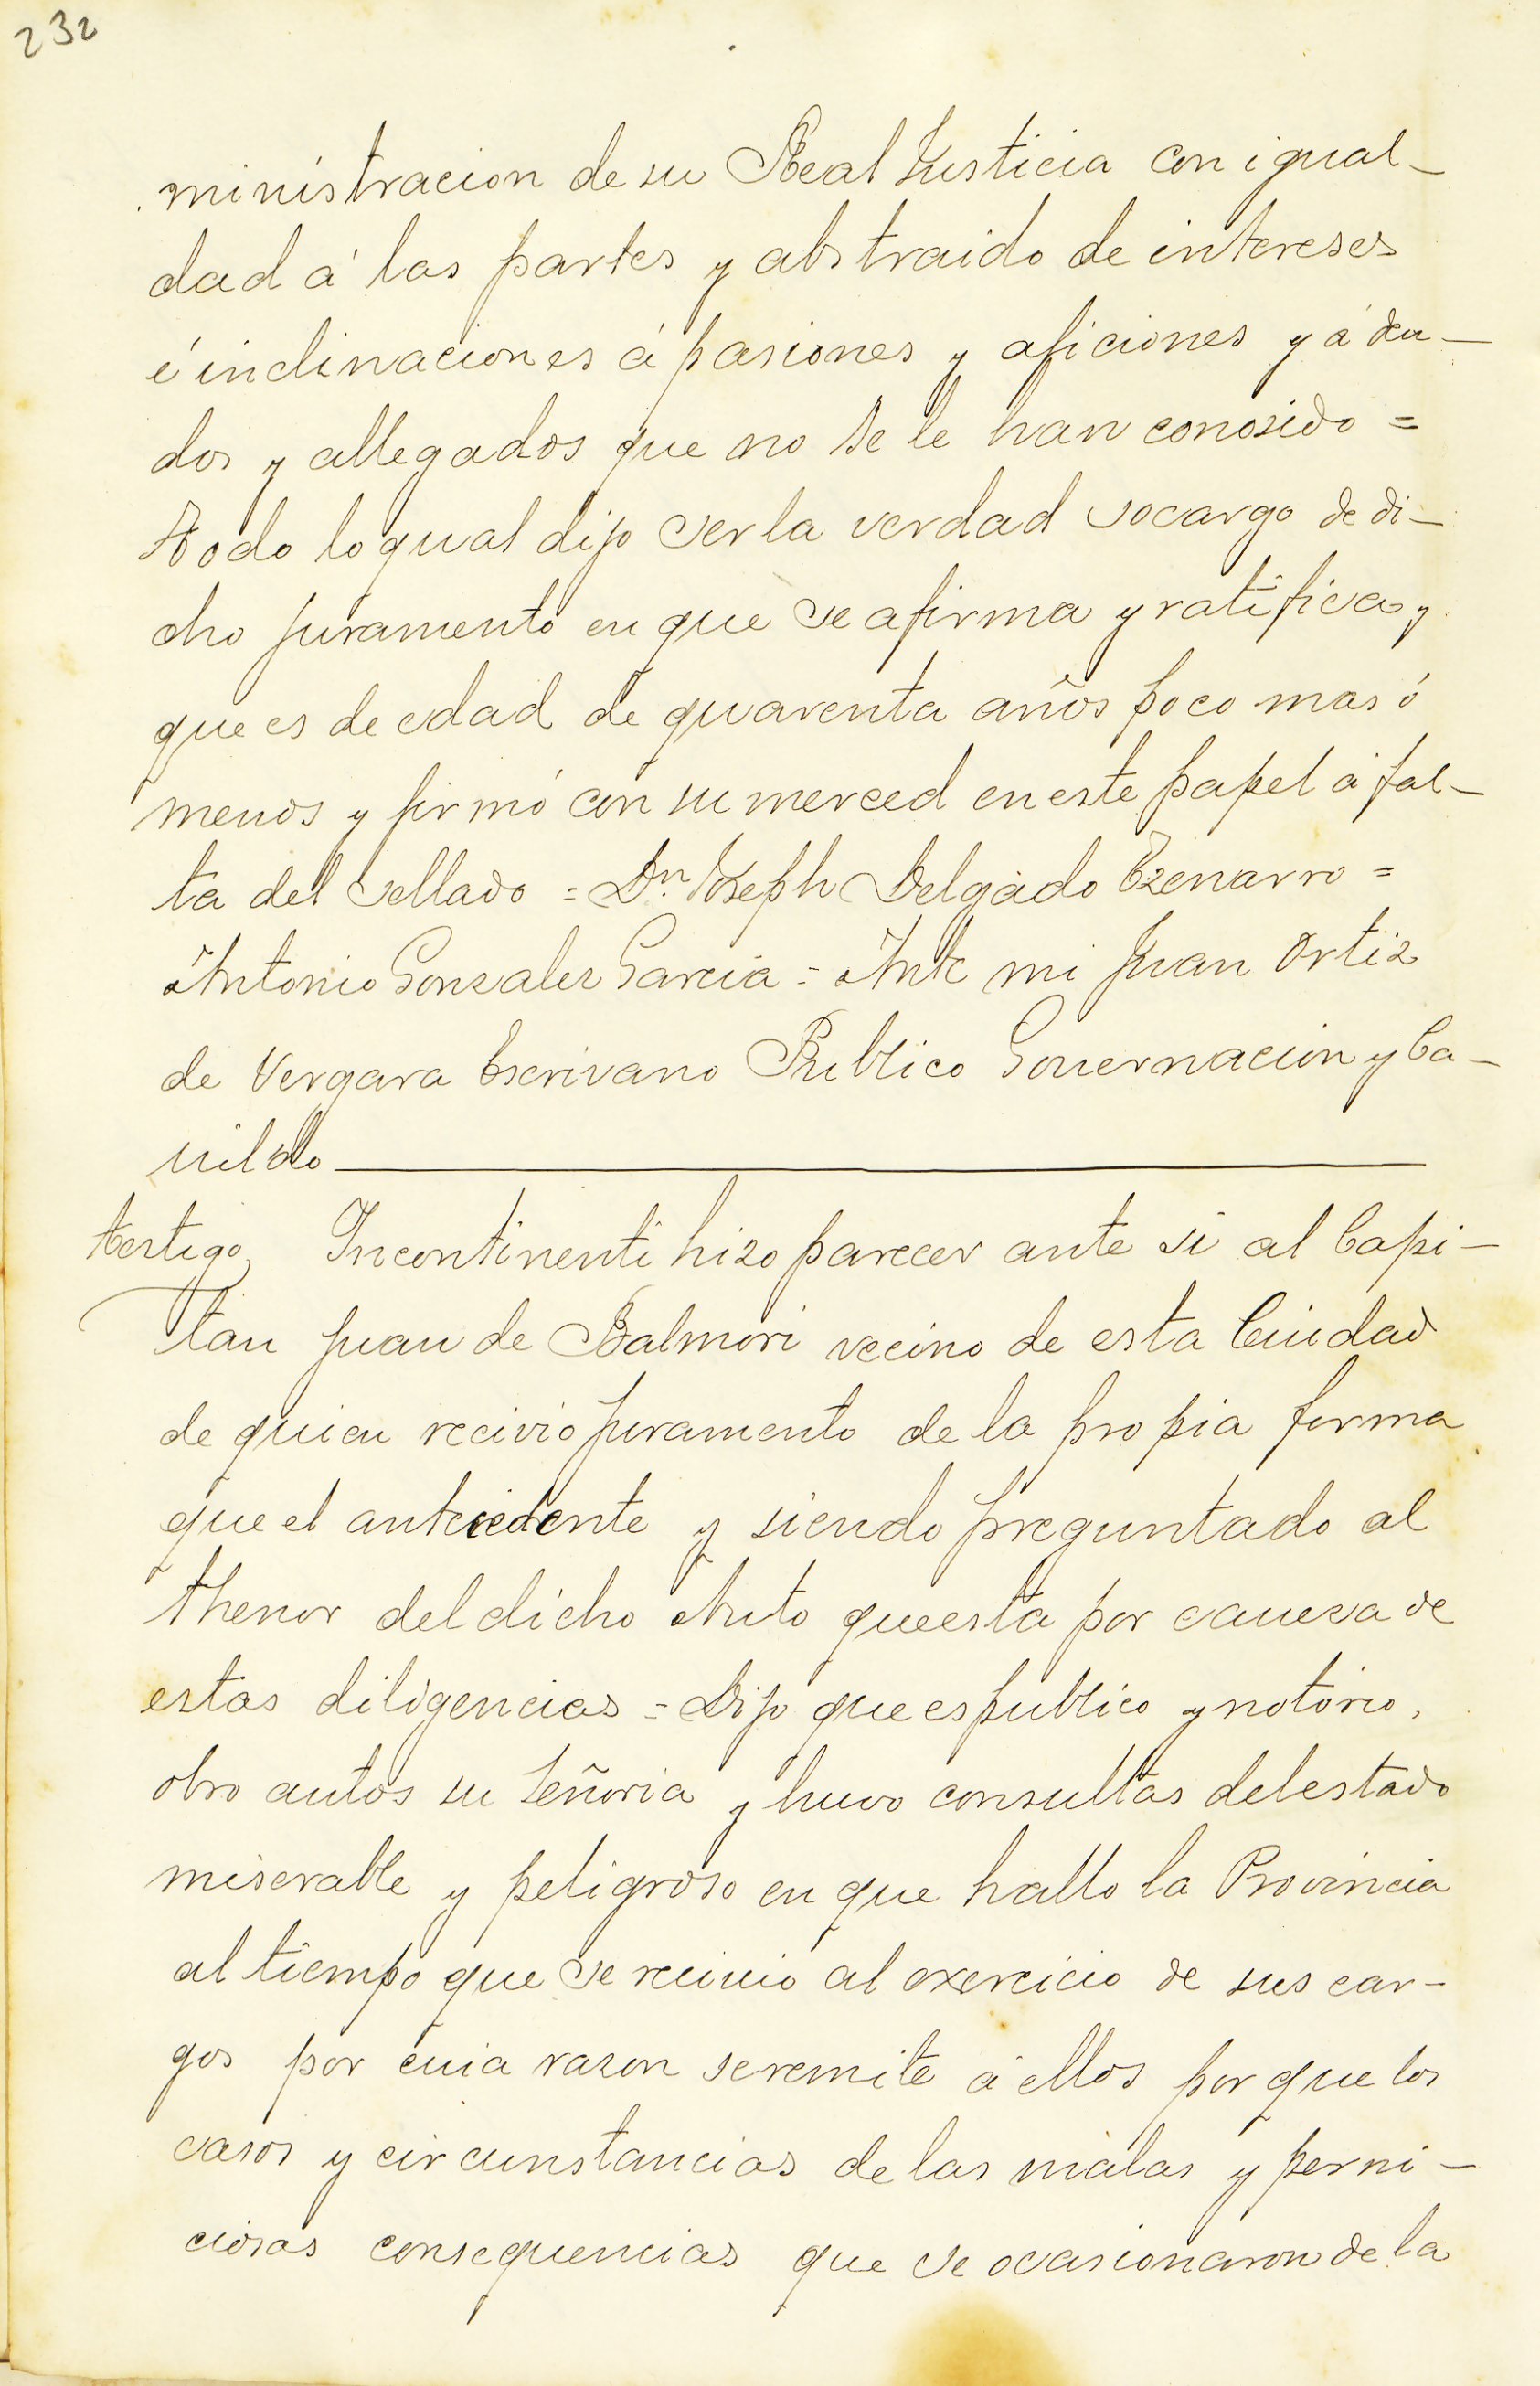 232
ministracion de su Real Justicia con igual-
dad á las partes y abstraido de intereses
é inclinaciones á pasiones y aficiones y á deu-
dos y allegados que no se le han conosido =
Todo lo qual dijo ser la verdad socargo de di-
cho juramento en que se afirma y ratifica y
que es de edad de quarenta años poco mas ó
menos y firmó con su merced en este papel á fal-
ta del sellado = Dn. Joseph Delgado Ezenarro =
Antonio Gonzalez Garcia = Ante mi Juan Ortiz
de Vergara Escrivano Publico Gouernacion y Ca-
uildo
testigo Incontinenti hizo parecer ante si al Capi-
tan Juan de Balmori vecino de esta Ciudad
de quien recivio juramento de la propia forma
que el antecedente y siendo preguntado al
thenor del dicho Auto que esta por caueza de
estas diligencias = Dijo que es publico y notorio,
obro autos su Señoria y huvo consultas del estado
miserable y peligroso en que hallo la Provincia
al tiempo que se reciuio al exercicio de sus car-
gos por cuia razon se remite á ellos por que los
casos y circunstancias de las malas y perni-
ciosas consequencias que se ocasionaron de la